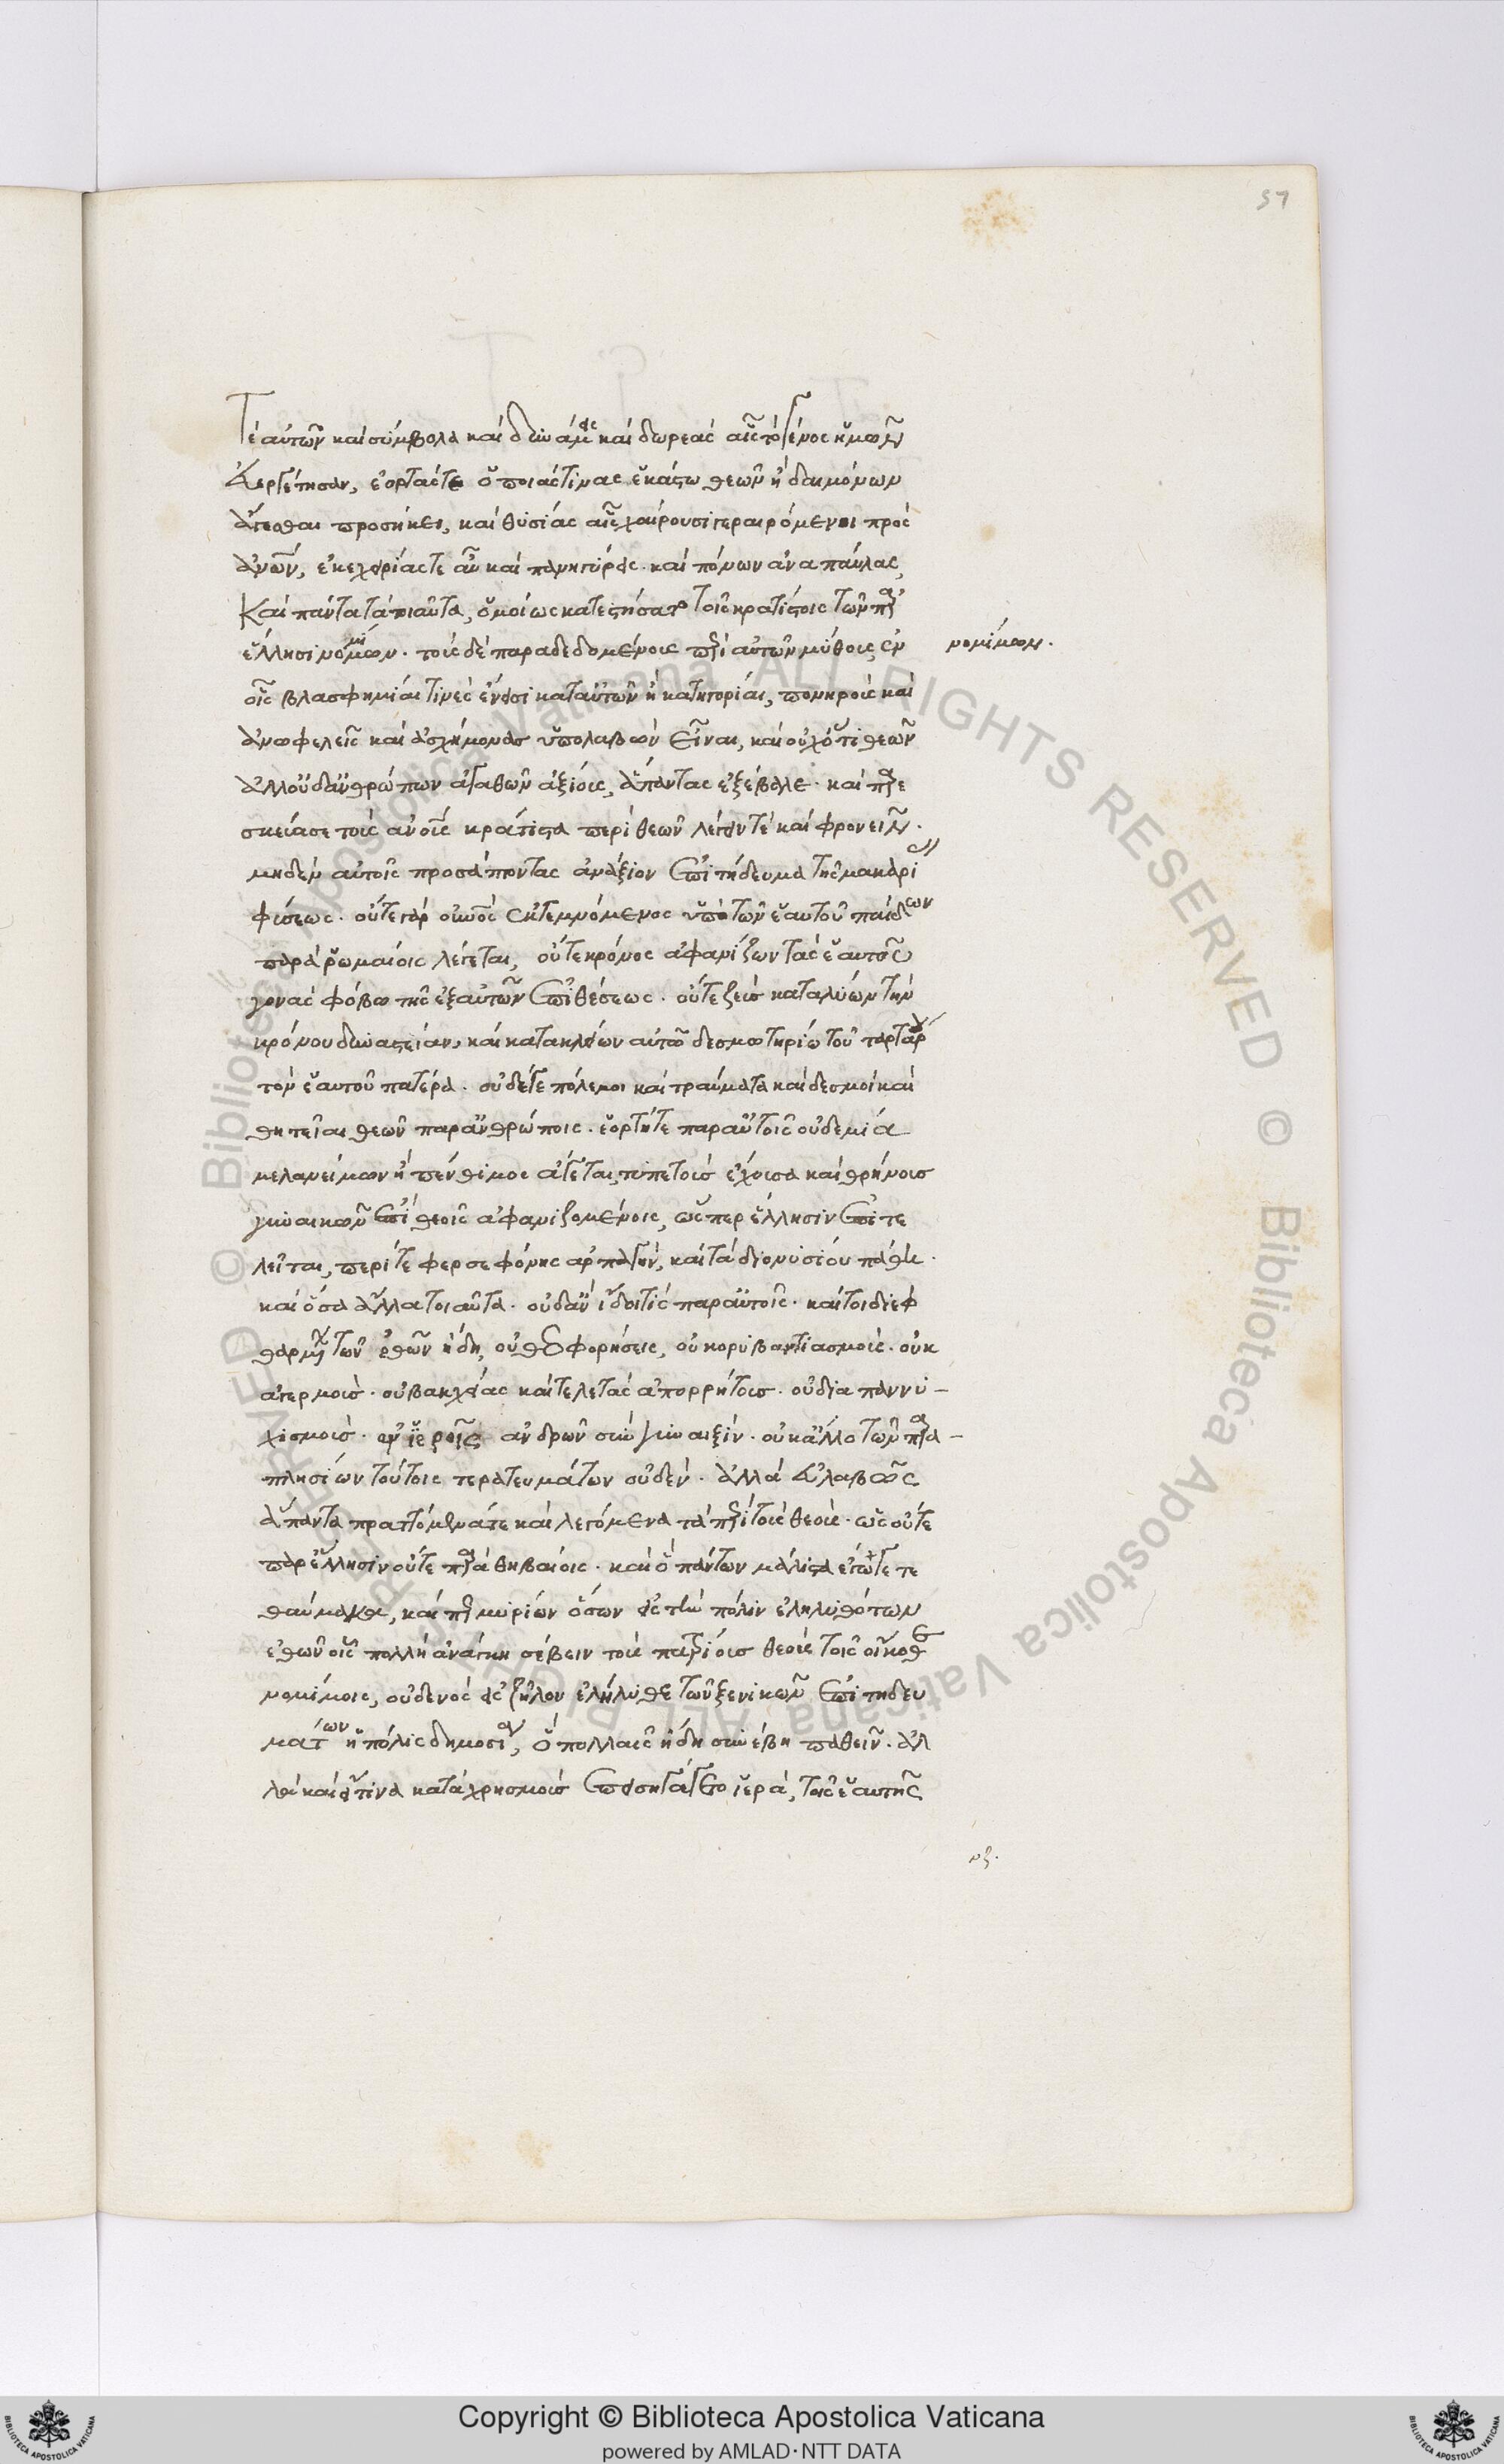 57
τέ αὐτῶν καὶ σύμβολα καὶ δυνάμεις καὶ δωρεὰς αἷς τὸ γένος ἡμῶν
εὐεργέτησαν, ἑορτάς τε ὁποίας τινὰς ἑκάστω θεῶν ἢ δαιμόνων
ἄγεσθαι προσήκει, καὶ θυσίας αἷς χαίρουσι γεραιρόμενοι πρὸς
ἀνῶν, ἐκεχειρίας τε αὖ καὶ πανηγύρεις. καὶ πόνων ἀναπαύλας,
Καὶ πάντα τὰ τοιαῦτα, ὁμοίως κατεστήσατο τοῖς κρατίστοις τῶν παρ'
ἕλλησι νομίμων. τοὺς δὲ παραδεδομένους περὶ αὐτῶν μύθους, ἐν
νομίμων.
οἷς βλασφημίαι τινές ἔνεισι κατ' αὐτῶν ἢ κατηγορίαι, πονηροὺς καὶ
ἀνωφελεῖς καὶ ἀσχήμονας ὑπολαβὼν εἶναι, καὶ οὐχ ὅτι θεῶν
ἀλλ' οὐδ' ἀνθρώπων ἀγαθῶν ἀξίους, ἅπαντας ἐξέβαλε. καὶ παρε
σκεύασε τοὺς ἀνους κράτιστα περὶ θεῶν λέγειν τέ καὶ φρονεῖν.
μηδὲν αὐτοῖς προσάπτοντας ἀνάξιον ἐπιτήδευμα τῆς μακαρίας
φύσεως. οὔτε γὰρ οὐνος ἐκτεμνόμενος ὑπὸ τῶν ἑαυτοῦ παίδων
παρὰ ῥωμαίοις λέγεται, οὔτε κρόνος ἀφανίζων τὰς ἑαυτοῦ
γονὰς φόβω τῆς ἐξ αὐτῶν ἐπιθέσεως. οὔτε ζεὺς καταλύων τὴν
κρόνου δυναστείαν, καὶ κατακλείων αὐτῶ δεσμωτηρίω τοῦ ταρτάρου
τὸν ἑαυτοῦ πατέρα. οὐδέ γε πόλεμοι καὶ τραύματα καὶ δεσμοὶ καὶ
θητεῖαι θεῶν παρ' ἀνθρώποις. ἑορτή τε παρ' αὐτοῖς οὐδεμία
μελανείμων ἢ πένθιμος ἄγεται, τυπετοὺς ἔχουσα καὶ θρήνους
γυναικῶν ἐπὶ θεοῖς ἀφανιζομένοις, ὥσπερ ἕλλησιν ἐπιτε
λεῖται, περί τε φερσεφόνης ἁρπαγὴν, καὶ τὰ διονυσίου πάθη.
καὶ ὅσα ἄλλα τοιαῦτα. οὐδ' ἂν ἴδοι τίς παρ' αὐτοῖς. καίτοι διεφ
θαρμένων τῶν ἐθῶν ἤδη, οὐ θεοφορήσεις, οὐ κορυβαντιασμούς. οὐκ
ἀγερμούς. οὐ βακχείας καὶ τελετὰς ἀπορρήτους. οὐ διαπαννυ-
χισμοὺς. ἐν ἱεροῖς ἀνδρῶν σὺν γυναιξίν. οὐκ ἄλλο τῶν παρα-
πλησίων τούτοις τερατευμάτων οὐδέν. ἀλλὰ εὐλαβῶς
ἅπαντα πραττόμενά τε καὶ λεγόμενα τὰ περὶ τοὺς θεοὺς. ὡς οὔτε
παρ' ἕλλησιν οὔτε παρὰ θηβαίοις. καὶ ὃ πάντων μάλιστα ἔγωγε τε
θαύμακα, καίπερ μυρίων ὅσων εἰς τὴν πόλιν ἐληλυθότων
ἐθῶν οἷς πολλὴ ἀνάγκη σέβειν τοὺς πατρίους θεοὺς τοῖς οἴκοθεν
νομίμοις, οὐδενὸς εἰς ζῆλον ἐλήλυθε τῶν ξενικῶν ἐπιτηδευ
μάτων ἡ πόλις δημοσία, ὃ πολλαῖς ἤδη συνέβη παθεῖν. ἀλ
λὰ καὶ εἴ τινα κατὰ χρησμοὺς ἐπεισηγάγετο ἱερά, τοῖς ἑαυτῆς
νζ.